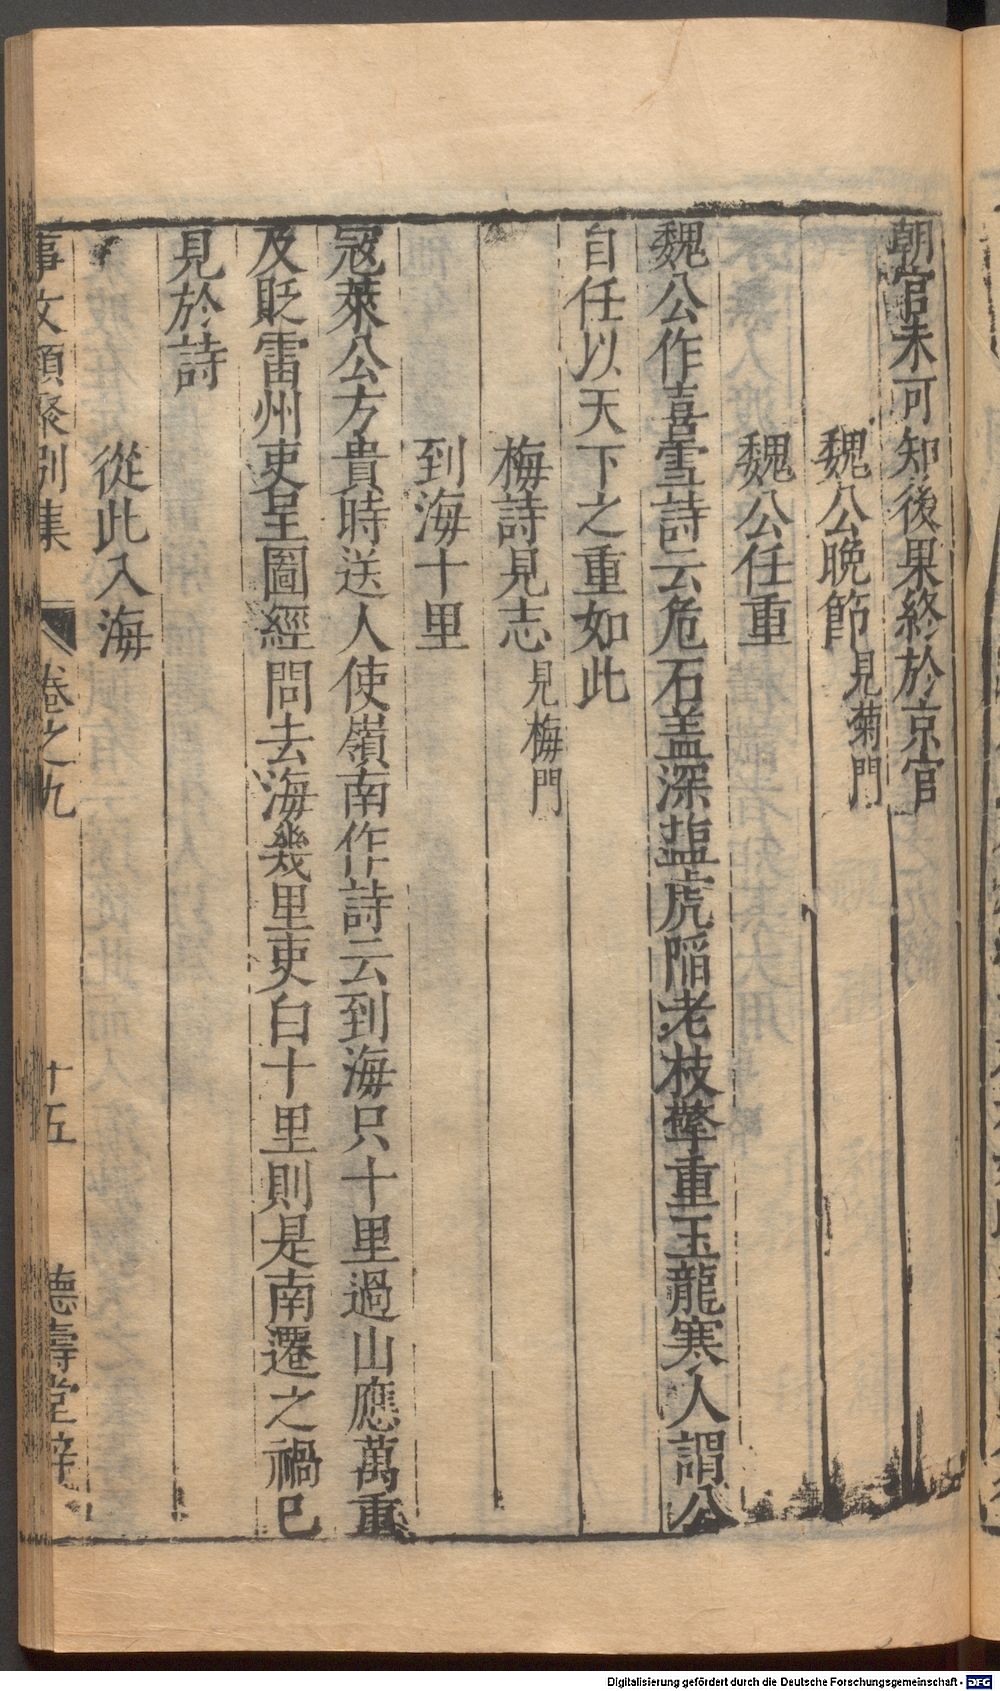 朝官未可知後果終於京官
魏公晚節見菊門
魏公任重
魏公作喜雪詩云危石盖深塩虎陷老枝擎重玉龍寒人謂公
自任以天下之重如此
梅詩見志見梅門
到海十里
冦萊公方貴時送人使嶺南作詩云到海只十里過山應萬重
及貶雷州吏呈圖經問去海幾里吏白十里則是南遷之禍已
見於詩
從此入海
事文類聚別集 卷之九 十五 德壽堂梓
Digitalisierung gefördert durch die Deutsche Forschungsgemeinschaft - DFG